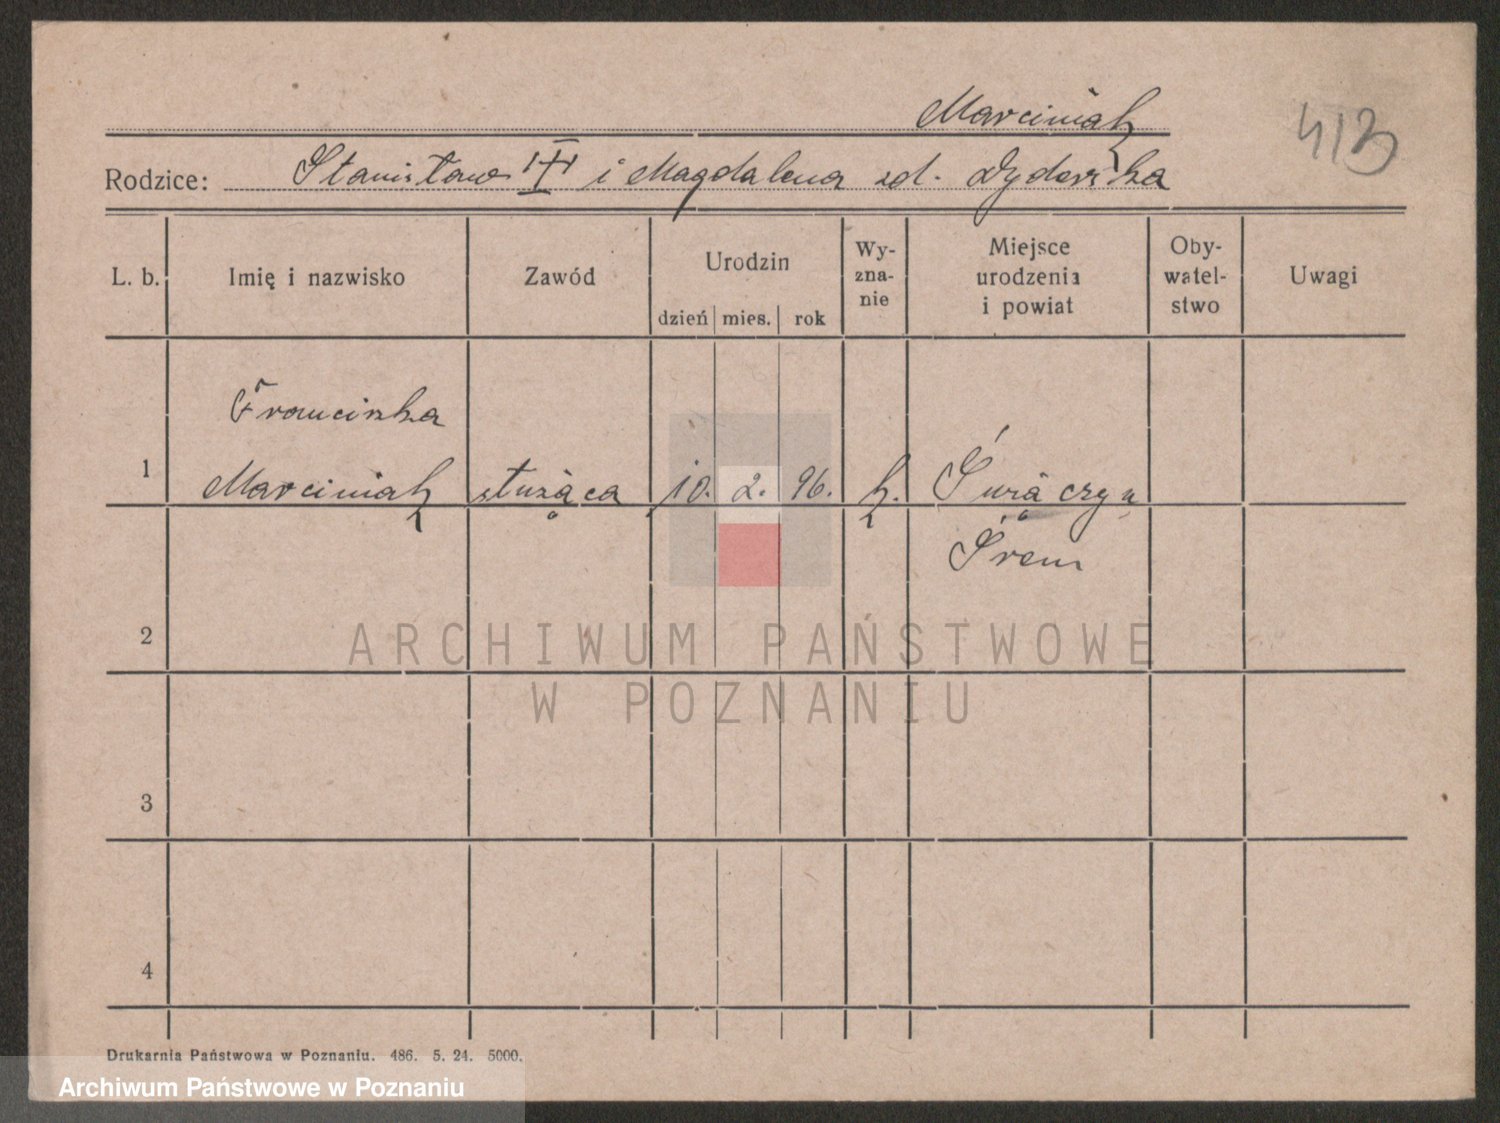 Marciniak
413
Rodzice: Stanisław III i Magdalena zd. Dyderska
L. b. Imię i nazwisko Zawód Urodzin dzień mies. rok Wy-zna-nie Miejsce urodzenia i powiat Oby-watel-stwo Uwagi
Franciszka
1 Marciniak służąca 10. 2. 96. k.
Śrem
2
ARCHIWUM PAŃSTWOWE
W POZNANIU
3
4
Drukarnia Państwowa w Poznaniu. 486. 5. 24. 5000.
Archiwum Państwowe w Poznaniu